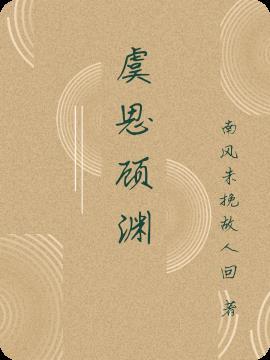 虞思顾渊
南风未挽故人回 著